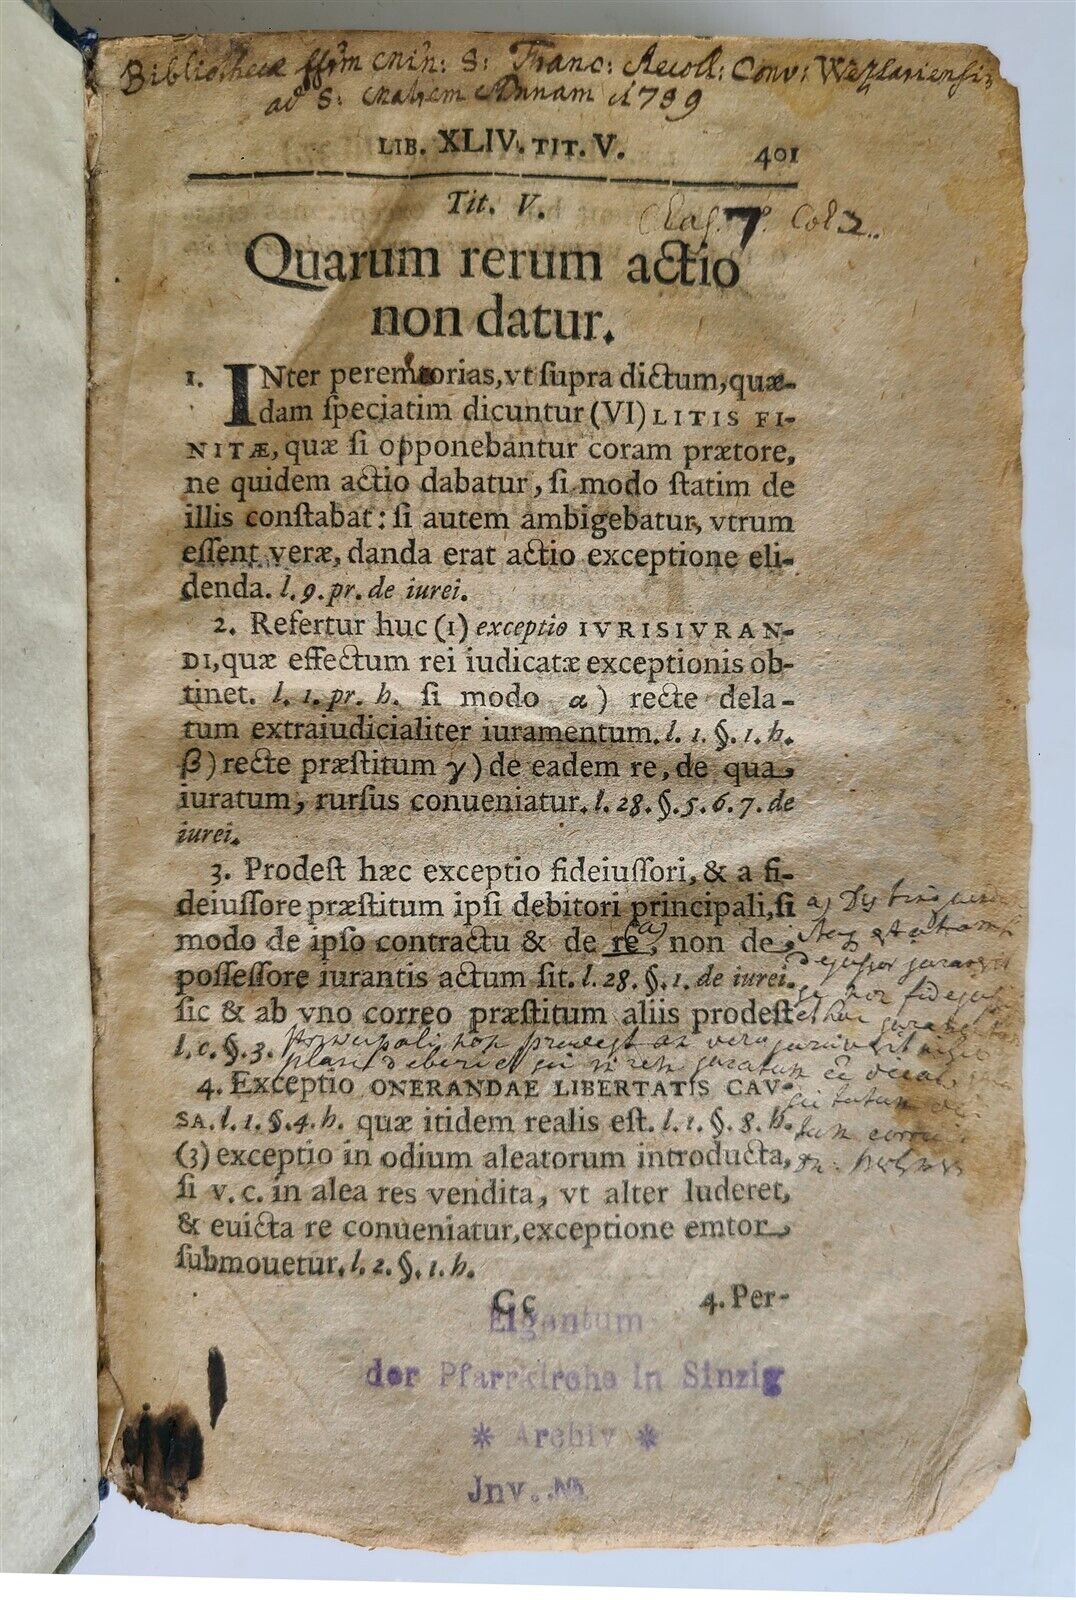 Bibliothecæ ffrm min: S: Franc: Recoll: Conv: Wezlariensis
ad S: Matrem Annam 1789
LIB. XLIV. TIT. V. 401
Tit. V.
Clas. 7. Col 2..
Quarum rerum actio
non datur.
1. INter peremtorias, vt ſupra dictum, quæ-
dam ſpeciatim dicuntur (VI) LITIS FI-
NITÆ, quæ ſi opponebantur coram prætore,
ne quidem actio dabatur, ſi modo ſtatim de
illis conſtabat: ſi autem ambigebatur, vtrum
eſſent veræ, danda erat actio exceptione eli-
denda. l. 9. pr. de iurei.
2. Refertur huc (1) exceptio IVRISIVRAN-
DI, quæ effectum rei iudicatæ exceptionis ob-
tinet. l. 1. pr. h. ſi modo α) recte dela-
tum extraiudicialiter iuramentum. l. 1. §. 1. h.
β) recte præſtitum γ) de eadem re, de qua
iuratum, rurſus conueniatur. l. 28. §. 5. 6. 7. de
iurei.
3. Prodeſt hæc exceptio fideiuſſori, & a fi-
deiuſſore præſtitum ipſi debitori principali, ſi
modo de ipſo contractu & de re (a), non de
poſſeſſore iurantis actum ſit. l. 28. §. 1. de iurei.
ſic & ab vno correo præſtitum aliis prodeſt
l. c. §. 3.
4. Exceptio ONERANDAE LIBERTATIS CAV-
SA. l. 1. §. 4. h. quæ itidem realis eſt. l. 1. §. 8. h.
(3) exceptio in odium aleatorum introducta,
ſi v. c. in alea res vendita, vt alter luderet,
& euicta re conueniatur, exceptione emtor
ſubmouetur. l. 2. §. 1. h.
Cc 4. Per-
Eigentum
der Pfarrkirche in Sinzig
* Archiv *
Jnv. Nr.